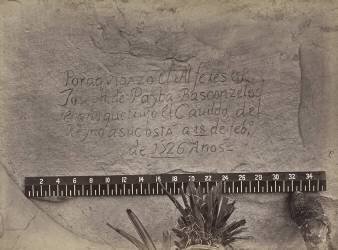 Por aqui pazo el Alferes Dn
Joseph de Payba Basconzelos
el año que trujo el Cauildo del
Reyno a su costa a 18 de feb,
de 1726 Años
2 4 6 8 10 12 14 16 18 20 22 24 26 28 30 32 34